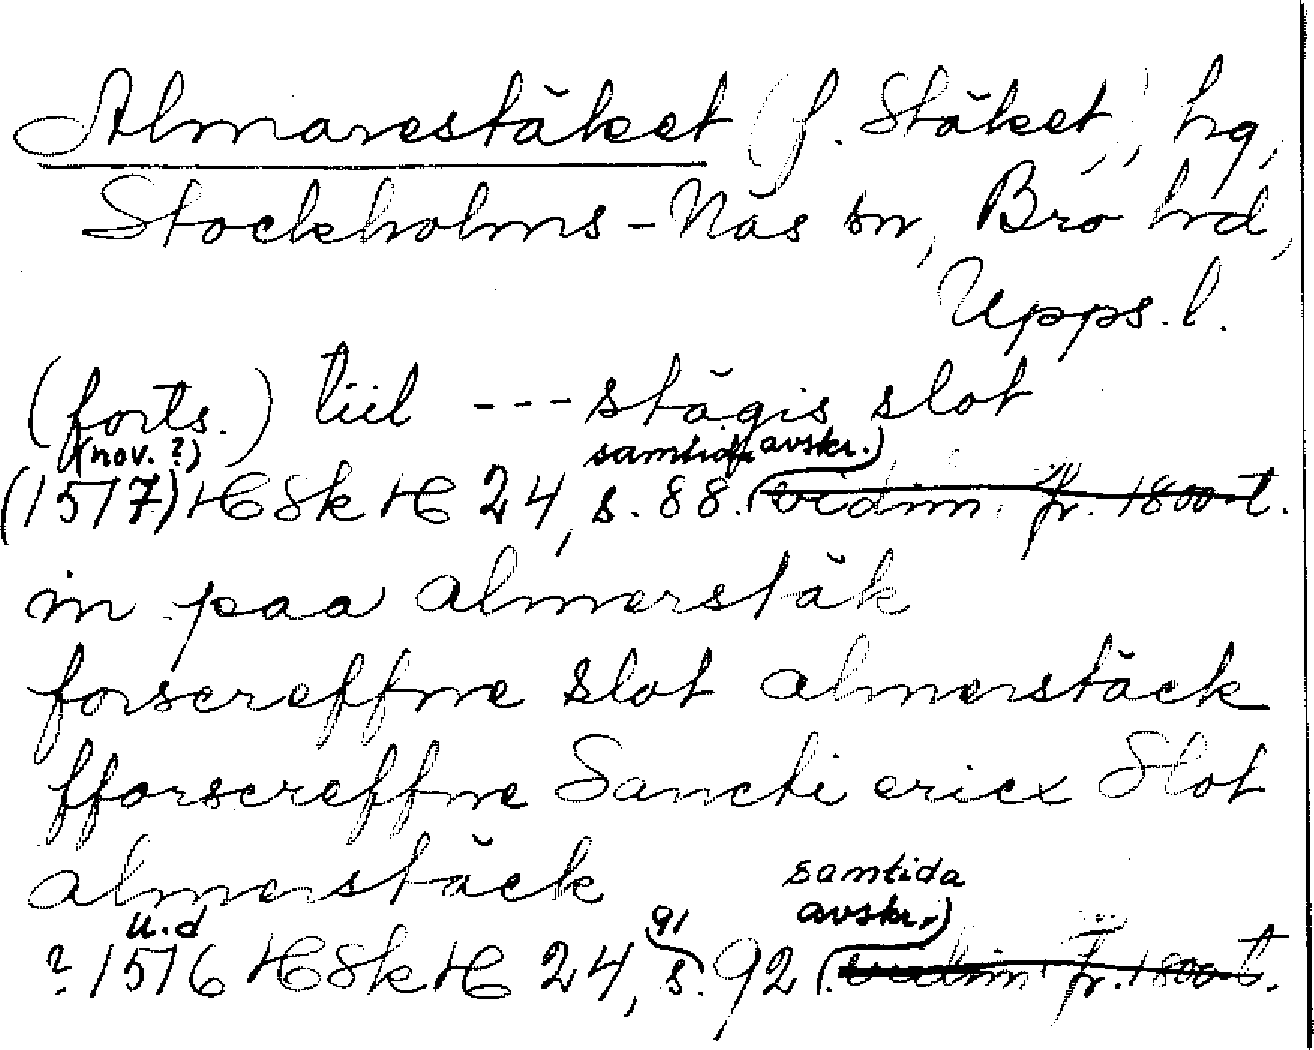 Almarestäket (f. Stäket), hg,
Stockholms-Näs sn, Bro hd,
Upps. l.
(forts.) tiil --- stägis slot
(nov. ?) samtida avskr.)
(1517) HSH 24, s. 88. (vidim. fr. 1800-t.
in paa almerstäk
forscreffne slot almerstäck
fforscreffne Sancti ericx Slot
almerstäck
samtida
u.d 91 avskr.)
? 1516 HSH 24, s. 92 (vidim fr. 1800-t.